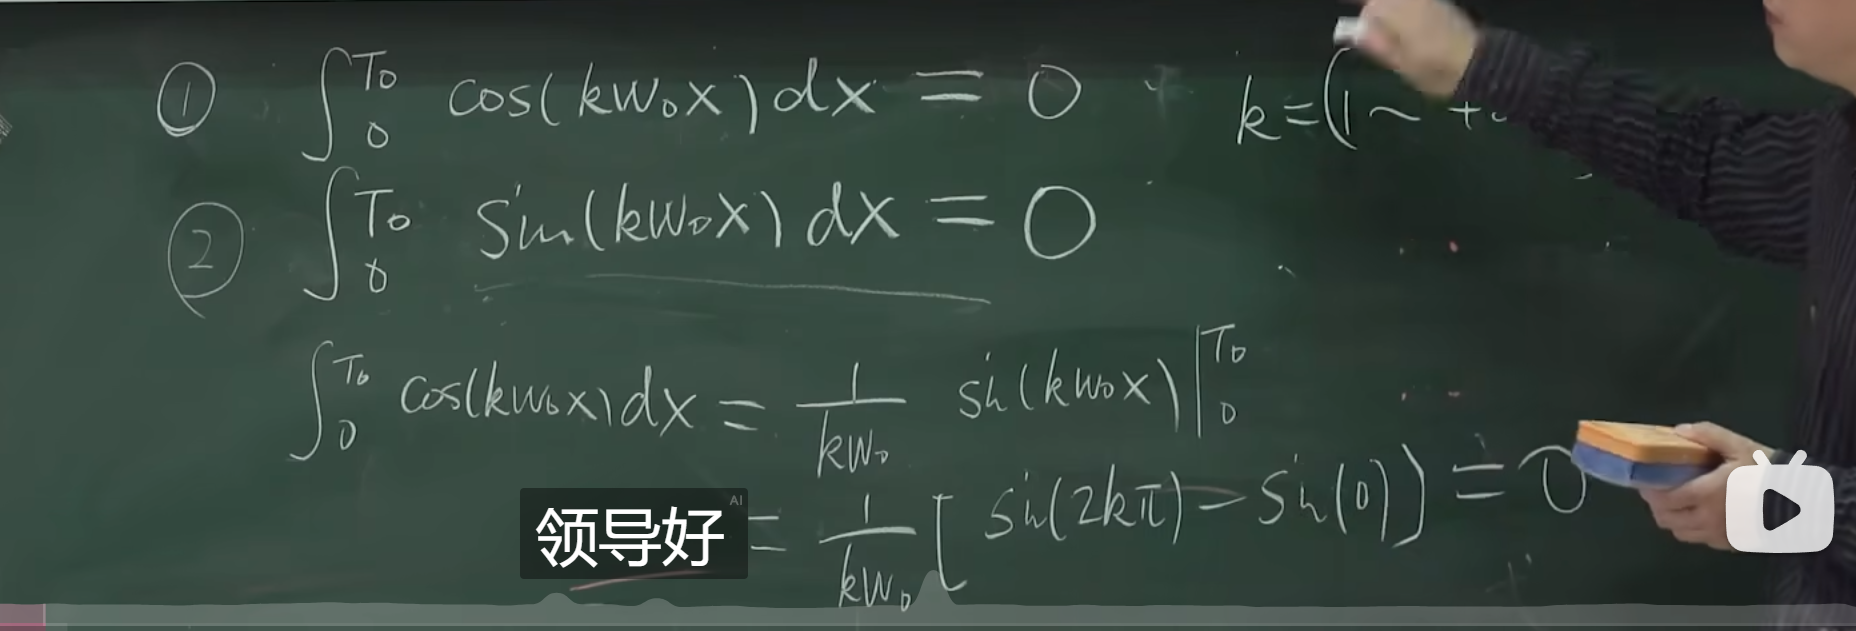 ① ∫₀^T₀ cos(kw₀x)dx = 0 k=(1~ +
② ∫₀^T₀ sin(kw₀x)dx = 0
∫₀^T₀ cos(kw₀x)dx = 1/kw₀ sin(kw₀x)|₀^T₀
= 1/kw₀ [sin(2kπ) - sin(0)] = 0
领导好
AI